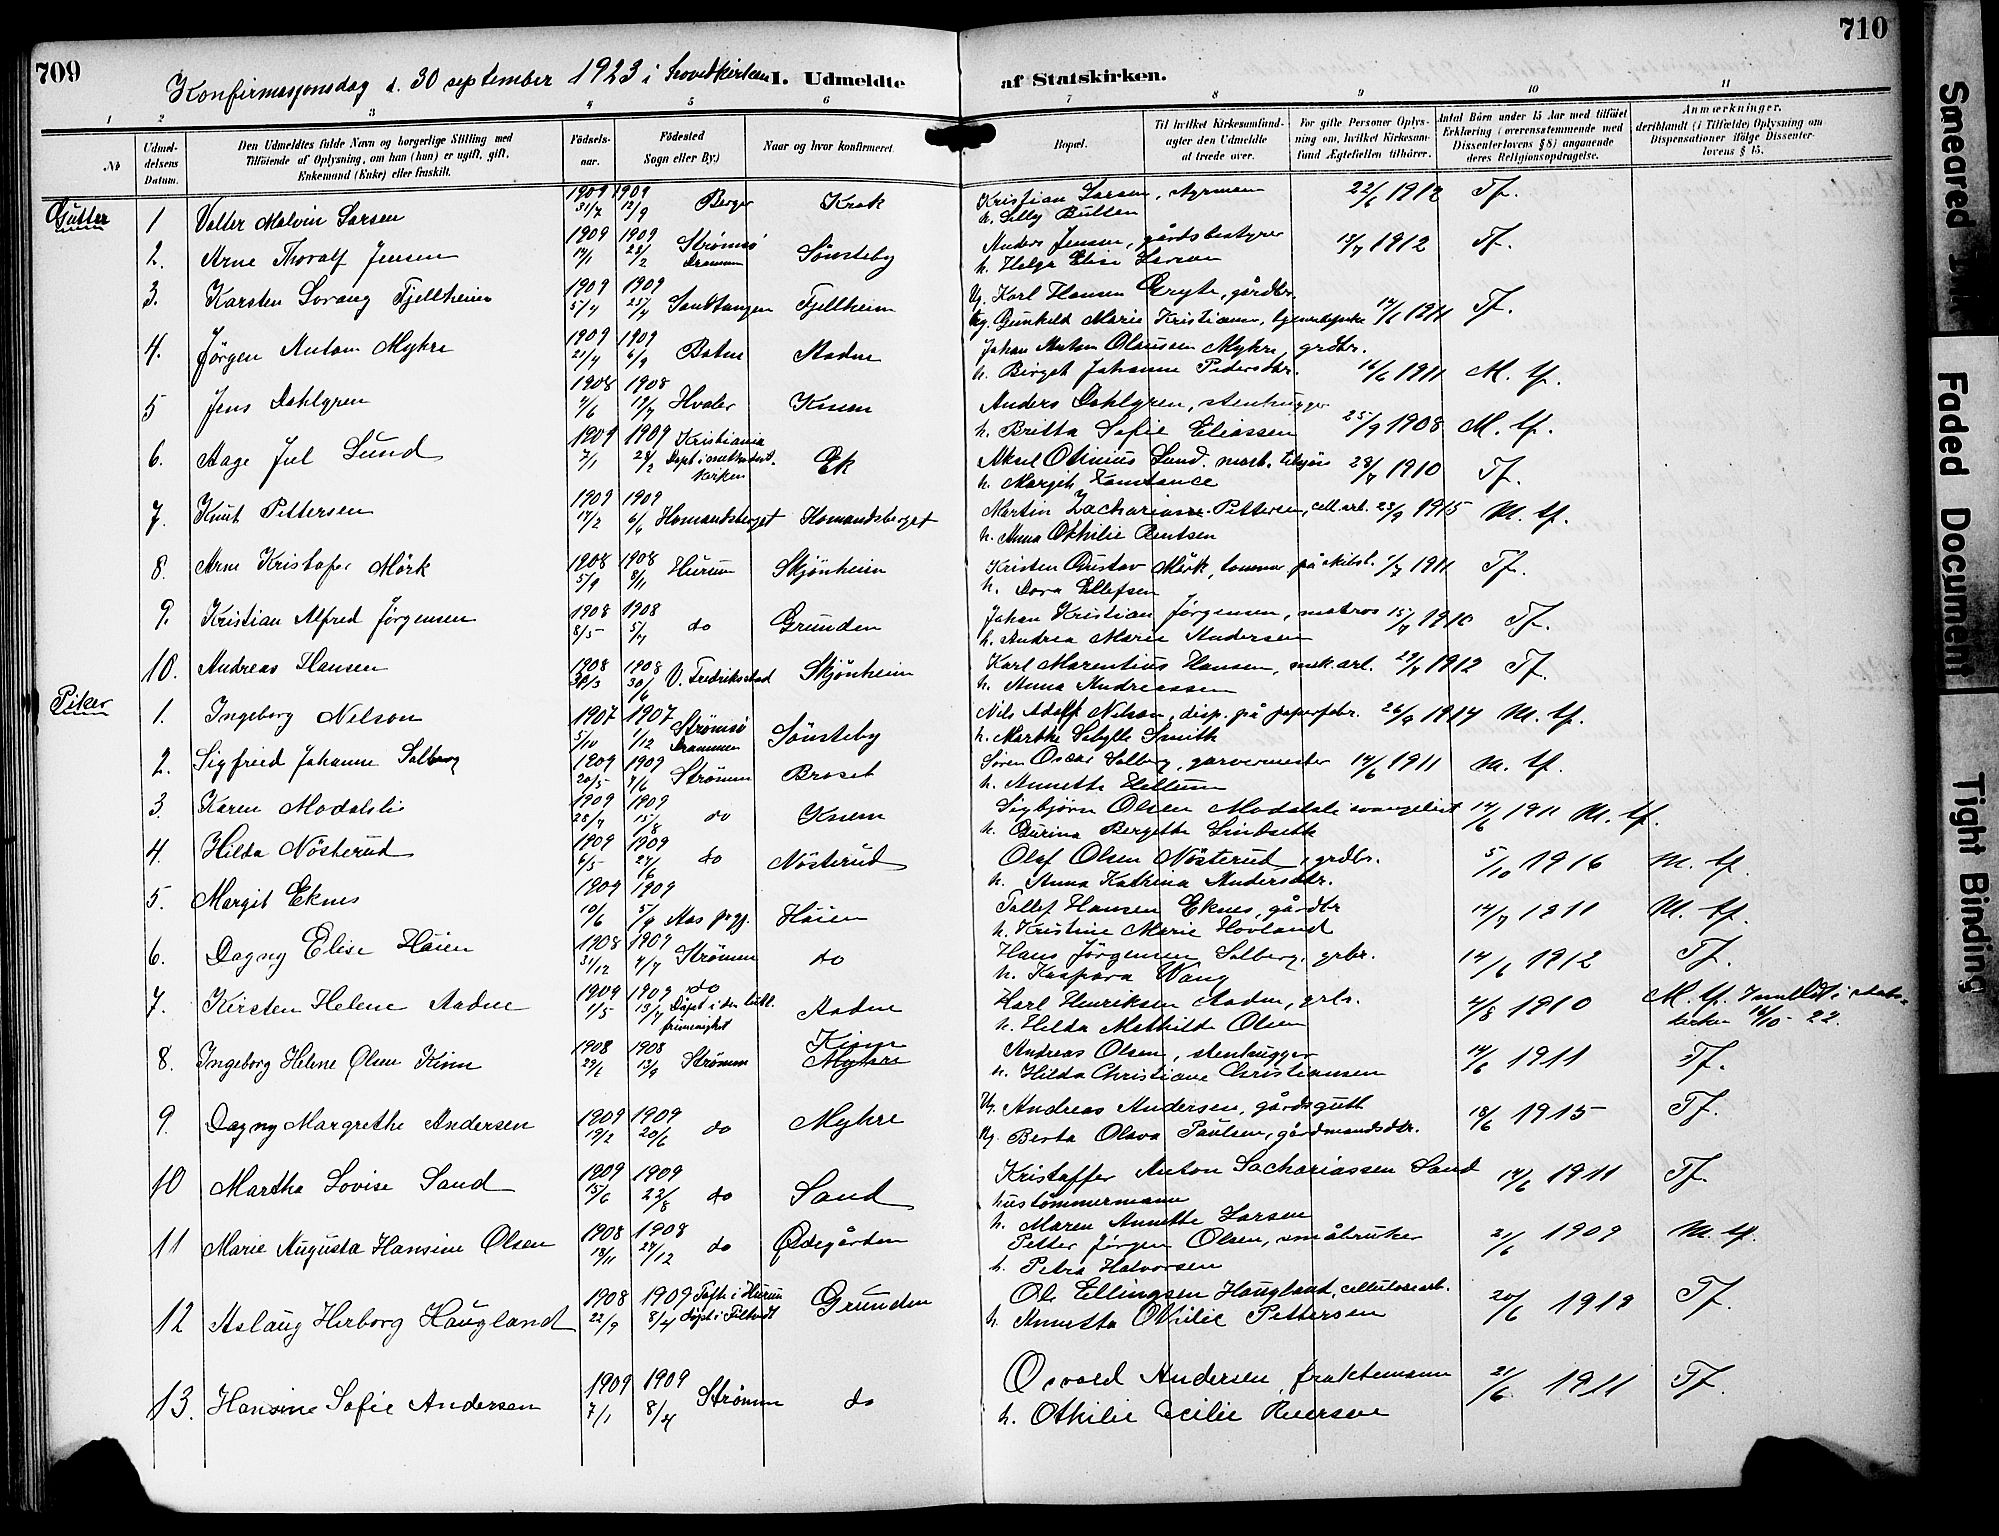 709
710
Konfirmasjonsdag d. 30 september 1923 i hovedkirken
I. Udmeldte af Statskirken.
1 2 3 4 5 6 7 8 9 10 11
№
Udmeldelsens Datum.
Den Udmeldtes fulde Navn og borgerlige Stilling med Tilføiende af Oplysning, om han (hun) er ugift, gift, Enkemand (Enke) eller fraskilt.
Fødselsaar.
Fødested Sogn eller By.)
Naar og hvor konfirmeret.
Bopæl.
Til hvilket Kirkesamfund agter den Udmeldte at træde over.
For gifte Personer Oplysning om, hvilket Kirkesamfund Ægtefællen tilhører.
Antal Børn under 15 Aar med tilføiet Erklæring (overensstemmende med Dissenterlovens § 8) angaaende deres Religionsopdragelse.
Anmærkninger, deriblandt (i Tilfælde) Oplysning om Dispensationer ifølge Dissenterlovens § 15.
Gutter
1 Valter Malvin Larsen 1909 31/7 1909 12/9 Berger Krok Kristian Larsen, styrmann 22/6 1912 Tf.
h. Lelly Bullen
2. Arne Thoralf Jensen 1909 14/1 1909 28/2 Strømsø Drammen Sønsteby Anders Jensen, gårdsbestyrer 13/7 1912 Tf.
h. Helga Elise Larsen
3. Karsten Sorang Fjellheim 1909 5/4 1909 25/4 Fjellheim Ug. Karl Hansen Gryte, gårdbr. 14/6 1911 Tf.
Ug. Gunhild Marie Kristiansen, tjenestepike
4. Jørgen Anton Myhre 1909 21/7 1909 6/9 Aadne Johan Anton Olaussen Myhre, grdbr. 16/6 1911 M. tf.
h. Birget Johanne Pedersdtr.
5 Jens Dahlgren 1908 4/6 1908 12/7 Hvaler Knem Anders Dahlgren, stenhugger 25/9 1908 M. tf.
h. Britta Sofie Eliassen
6. Aage Jul Lund 1909 7/1 1909 28/2 Kristiania Døpt i metodistkirken Ek Aksel Otinius Lund. 28/7 1910 Tf.
h. Margit Konstance
7. Knut Pettersen 1909 17/2 1909 6/6 Homandsberget Homandsberget Martin Zachariasse. Pettersen, cell.arb. 23/9 1915 M. tf.
h. Anna Othilie Bentsen
8. Arne Kristofer Mörk 1908 5/9 1908 8/11 Hurum Skjønheim Kristen Gustav Mörk, tømmer på skibst. 1/7 1911 Tf.
h. Dora Ellefsen
9. Kristian Alfred Jørgensen 1908 8/5 1908 5/7 do Grunden Johan Kristian Jørgensen, matros 15/7 1910 Tf.
h. Andrea Marie Andersen
10. Andreas Hansen 1908 30/3 1908 30/6 V. Fredrikstad Skjønheim Karl Marentius Hansen, mek. arb. 29/7 1912 Tf.
h. Anna Andreassen
Piker
1. Ingeborg Nelson 1907 5/10 1907 1/12 Strømsø Drammen Sønsteby Nils Adolf Nilson, disp. på papirfabr. 26/9 1914 M. tf.
h. Marthe Sibylle Smith
2. Sigfreid Johanne Solberg 1909 20/5 1909 4/6 Strømm Broset Søren Oscar Solberg, garvermester 14/6 1911 M. tf.
h. Annette Hellum
3 Karen Modalsli 1909 28/4 1909 15/8 do Knem Sigbjørn Olsen Modalsli evangelist 14/6 1911 M. tf.
h. Gurina Bergitte Lindseth
4. Hilda Nösterud 1909 6/5 1909 27/6 do Nösterud Olaf Olsen Nösterud, grdbr. 5/10 1916 M. tf.
h. Anna Katrina Andersdtr.
5. Margit Eknes 1909 10/6 1909 5/9 Aas pgj. Høien Tallef Hansen Eknes, gårdbr 14/7 1911 M. tf.
h. Kristine Marie Hovland
6. Dagny Elise Høien 1908 31/12 1909 4/4 Strømm do Hans Jørgensen Solberg, grbr. 14/6 1912 Tf.
h. Kaspara Wang
7. Kirsten Helene Aadne 1909 1/5 1909 13/7 do Døpt i den luth. frimenighet Aadne Karl Henriksen Aadne, grbr. 4/8 1910 M. tf. Innmeldt i statskirken 16/10 - 22.
h. Hilda Mathilde Olsen
8. Ingeborg Helene Olsen Kinn 1908 29/6 1908 13/9 Strømm Kinn Myhre Andreas Olsen, stenhugger 14/6 1911 Tf.
h. Hilda Christiane Christiansen
9. Dagny Margrethe Andersen 1909 19/2 1909 20/6 do Myhre Ug. Andreas Andersen, gårdsgutt 18/6 1915 Tf.
Ug. Berta Olava Paulsen, gårdmandsdtr.
10 Martha Lovise Sand 1909 15/6 1909 22/8 do Sand Kristoffer Anton Sachariassen Sand 14/6 1911 Tf.
hustømmermann
h. Maren Annette Larsen
11 Marie Augusta Hansine Olsen 1908 13/11 1908 27/12 do Ødegården Petter Jørgen Olsen, småbruker 21/6 1909 M. tf.
h. Petra Halvorsen
12 Aslaug Herborg Haugland 1908 22/9 1909 8/4 Tofte i Hurum døpt i Filtvedt Grunden Ole Ellingsen Haugland, cellulosearb. 20/6 1912 Tf.
h. Annetta Otilie Pettersen
13. Hansine Sofie Andersen 1909 7/1 1909 8/4 Strømm do Osvald Andersen, fraktemann 21/6 1911 Tf.
h. Othilie Cecilie Iversen
Smeared Ink
Faded Document
Tight Binding